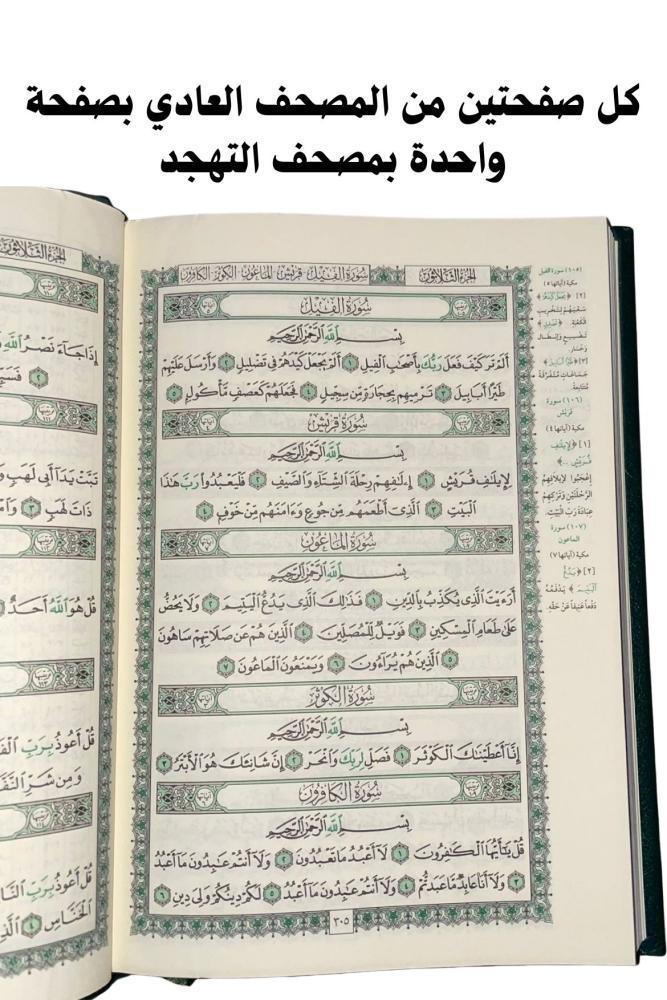 كل صفحتين من المصحف العادي بصفحة
واحدة بمصحف التهجد
الجزء الثلاثون
سورة الفيل - قريش - الماعون - الكوثر - الكافرون
سورة الفيل
بسم الله الرحمن الرحيم
ألم تر كيف فعل ربك بأصحب الفيل ١ ألم يجعل كيدهم في تضليل ٢ وأرسل عليهم
طيرا أبابيل ٣ ترميهم بحجارة من سجيل ٤ فجعلهم كعصف مأكول ٥
سورة قريش
بسم الله الرحمن الرحيم
لإيلف قريش ١ إلفهم رحلة الشتاء والصيف ٢ فليعبدوا رب هذا
البيت ٣ الذي أطعمهم من جوع وءامنهم من خوف ٤
سورة الماعون
بسم الله الرحمن الرحيم
أرءيت الذي يكذب بالدين ١ فذلك الذي يدع اليتيم ٢ ولا يحض
على طعام المسكين ٣ فويل للمصلين ٤ الذين هم عن صلاتهم ساهون
٥ الذين هم يراءون ٦ ويمنعون الماعون ٧
سورة الكوثر
بسم الله الرحمن الرحيم
إنا أعطينك الكوثر ١ فصل لربك وانحر ٢ إن شانئك هو الأبتر ٣
سورة الكافرون
بسم الله الرحمن الرحيم
قل يأيها الكفرون ١ لا أعبد ما تعبدون ٢ ولا أنتم عبدون ما أعبد
٣ ولا أنا عابد ما عبدتم ٤ ولا أنتم عبدون ما أعبد ٥ لكم دينكم ولي دين ٦
٣٠٥
(١٠٥) سورة الفيل
مكية (آياتها ٥)
[٢] ﴿يجعل كيدهم﴾
سعيهم لتخريب
الكعبة. ﴿تضليل﴾
تضييع وإبطال
وخسار
[٣] ﴿طيرا أبابيل﴾
جماعات متفرقة
متتابعة.
(١٠٦) سورة
قريش
مكية (آياتها ٤)
[١] ﴿لإيلف
قريش ...﴾
اعجبوا لإيلافهم
الرحلتين وتركهم
عبادة رب البيت.
(١٠٧) سورة
الماعون
مكية (آياتها ٧)
[٢] ﴿يدع
اليتيم﴾ يدفعه
دفعا عنيفا عن حقه.
الجزء الثلاثون
إذا جاء نصر الله
تبت يدا أبي لهب
ذات لهب ٣
قل هو الله أحد
قل أعوذ برب
ومن شر
قل أعوذ برب
الخناس ٤